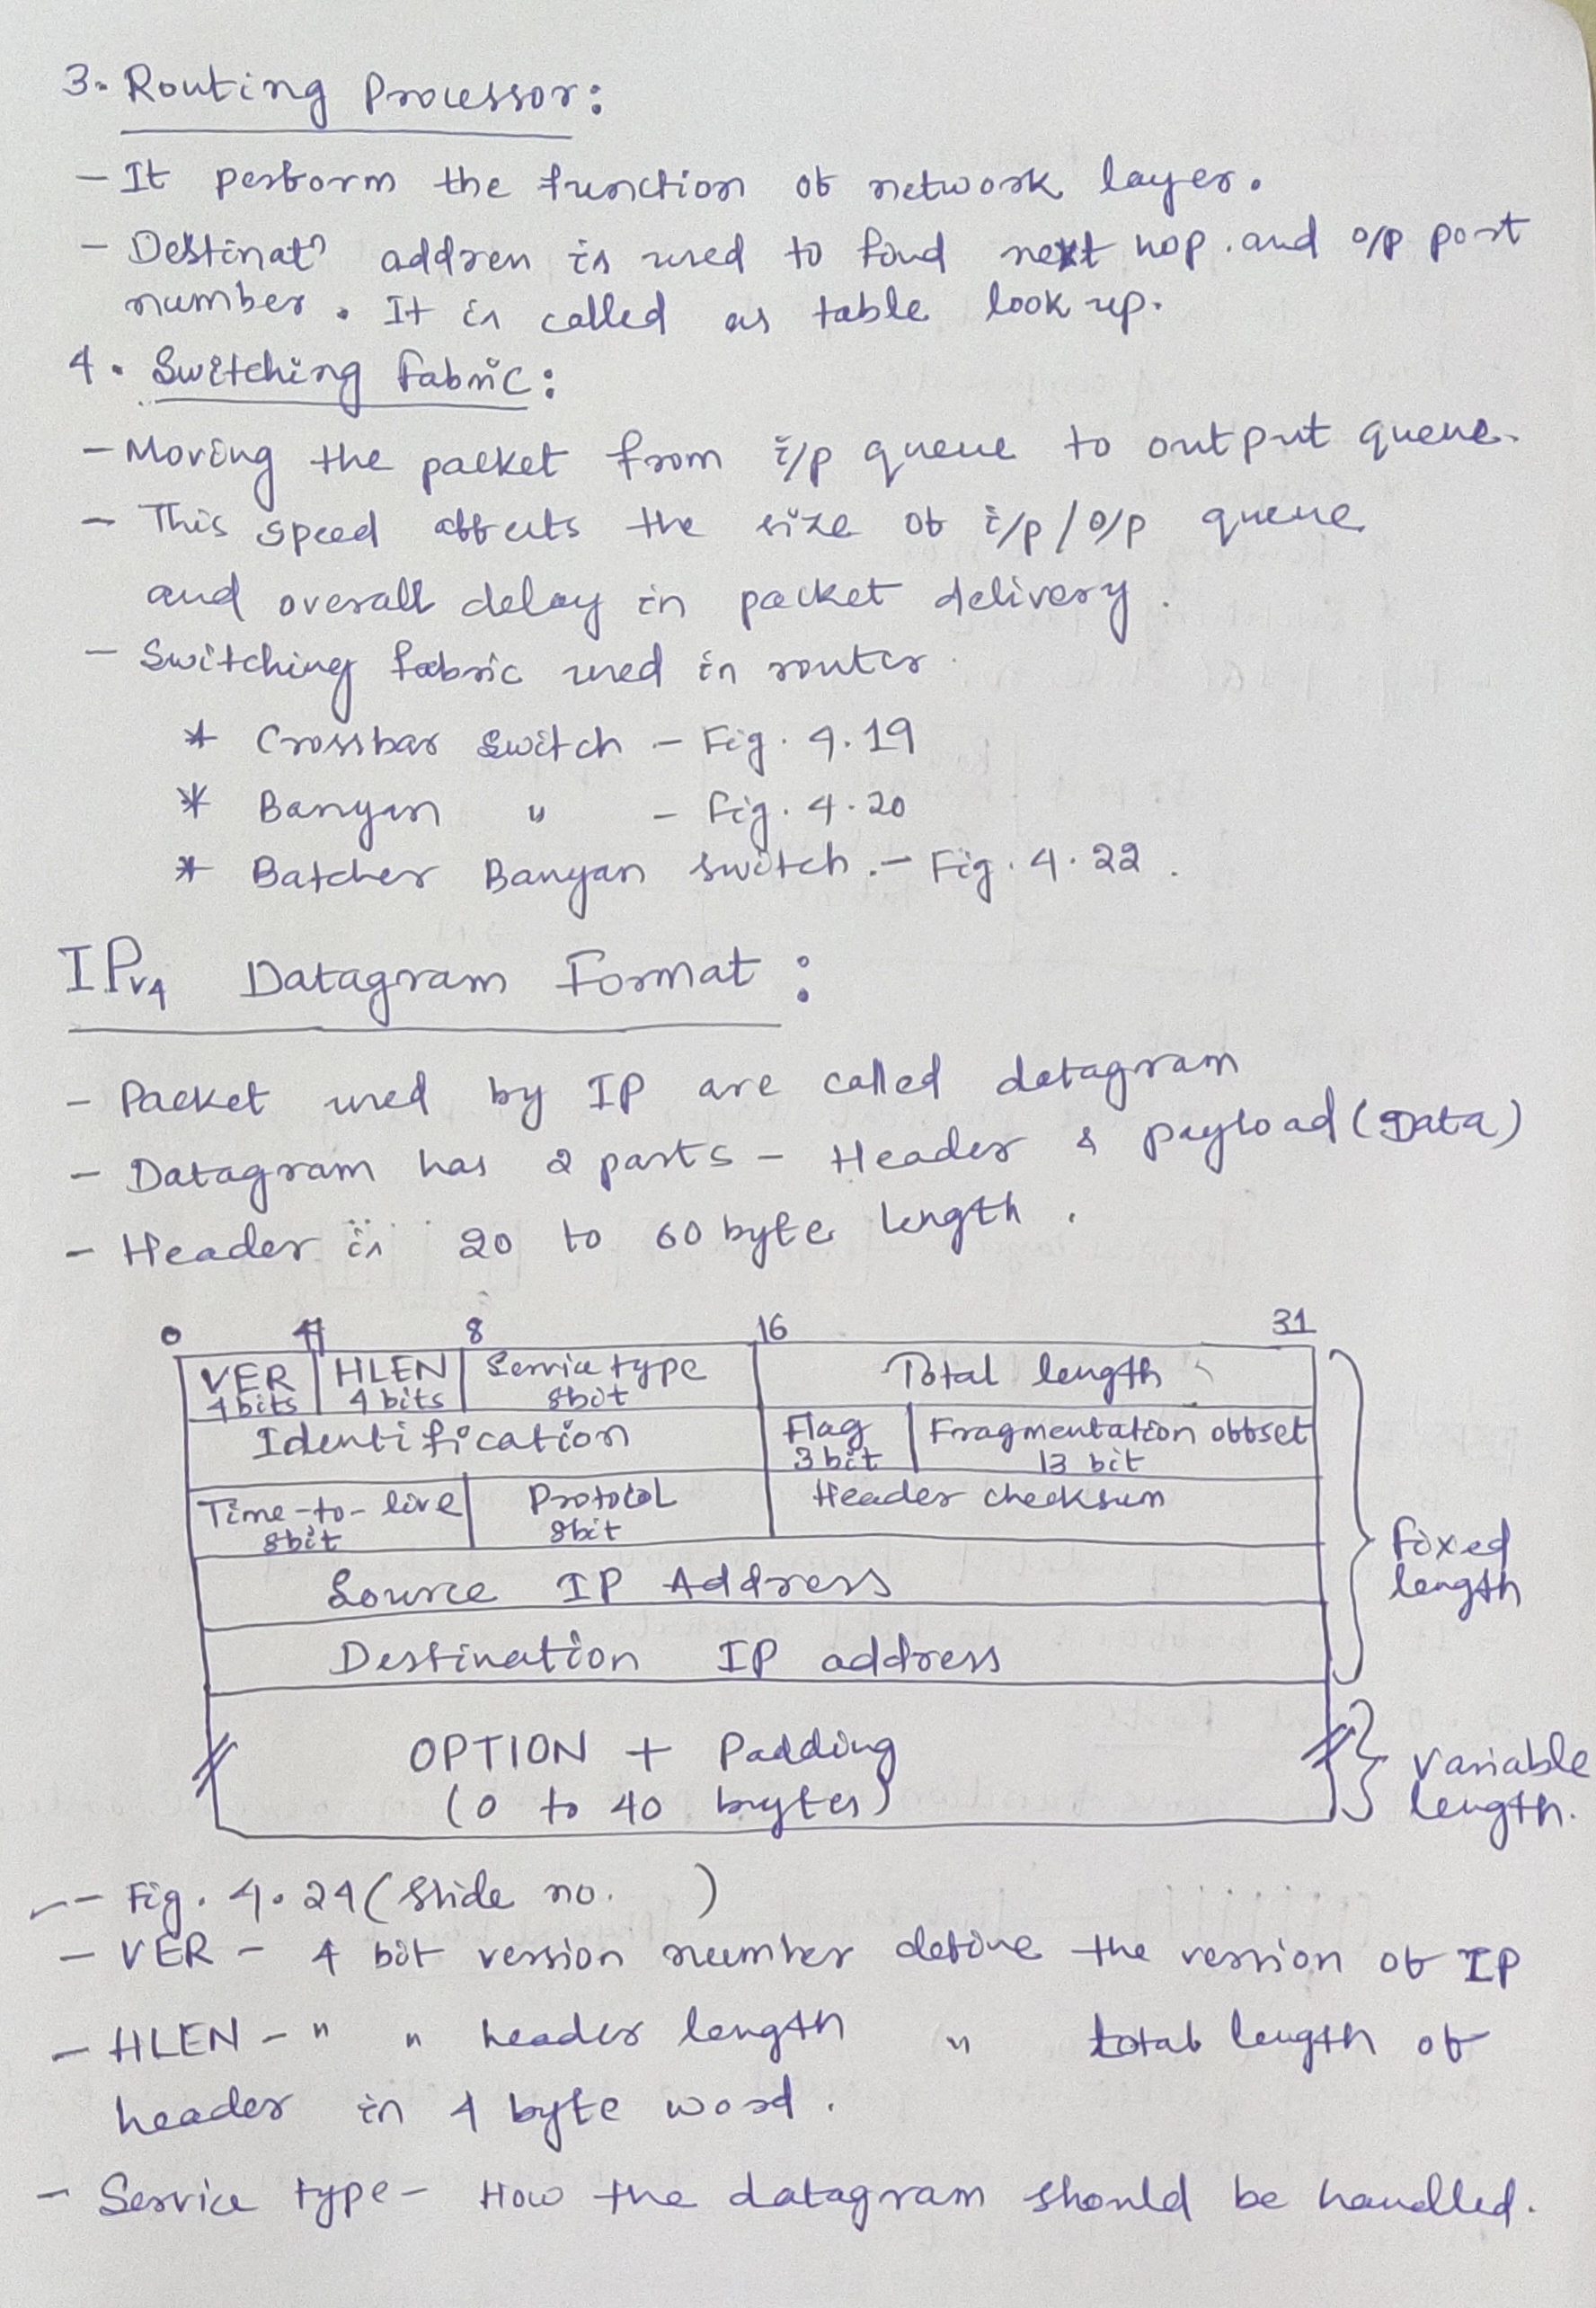 3. Routing Processor:
- It perform the function of network layer.
- Destinatn address is used to find next hop. and o/p port
number. It is called as table look up.
4. Switching Fabric:
- Moving the packet from i/p queue to output queue.
- This speed affects the size of i/p / o/p queue
and overall delay in packet delivery.
- Switching fabric used in router
* Crossbar Switch - Fig. 4.19
* Banyan " - Fig. 4.20
* Batcher Banyan switch. - Fig. 4.22.
IPv4 Datagram Format:
- Packet used by IP are called datagram
- Datagram has 2 parts - Header & payload (Data)
- Header is 20 to 60 byte length.
0 4 8 16 31
VER HLEN Service type Total length
4 bits 4 bits 8bit
Identification Flag Fragmentation offset
3 bit 13 bit
Time-to-live Protocol Header checksum
8bit 8bit
Fixed
length
Source IP Address
Destination IP address
OPTION + Padding
(0 to 40 bytes)
Variable
length.
-- Fig. 4.24 (Slide no. )
- VER - 4 bit version number define the version of IP
- HLEN - " " header length " total length of
header in 4 byte word.
- Service type - How the datagram should be handled.